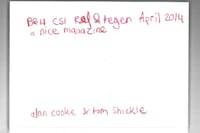 BRH CSI & tegen April 2014
a nice magazine
alan cooke & tom shickle